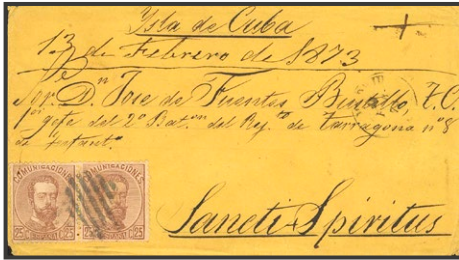 Isla de Cuba
13 de Febrero de 1873
Sor. Dn Jose de Fuentes Bustillo T.C.
1er gefe del 2º Bat.on del Rej.to de Tarragona nº 8
de Infant.a
COMUNICACIONES COMUNICACIONES
25 25 25
Sancti Spiritus